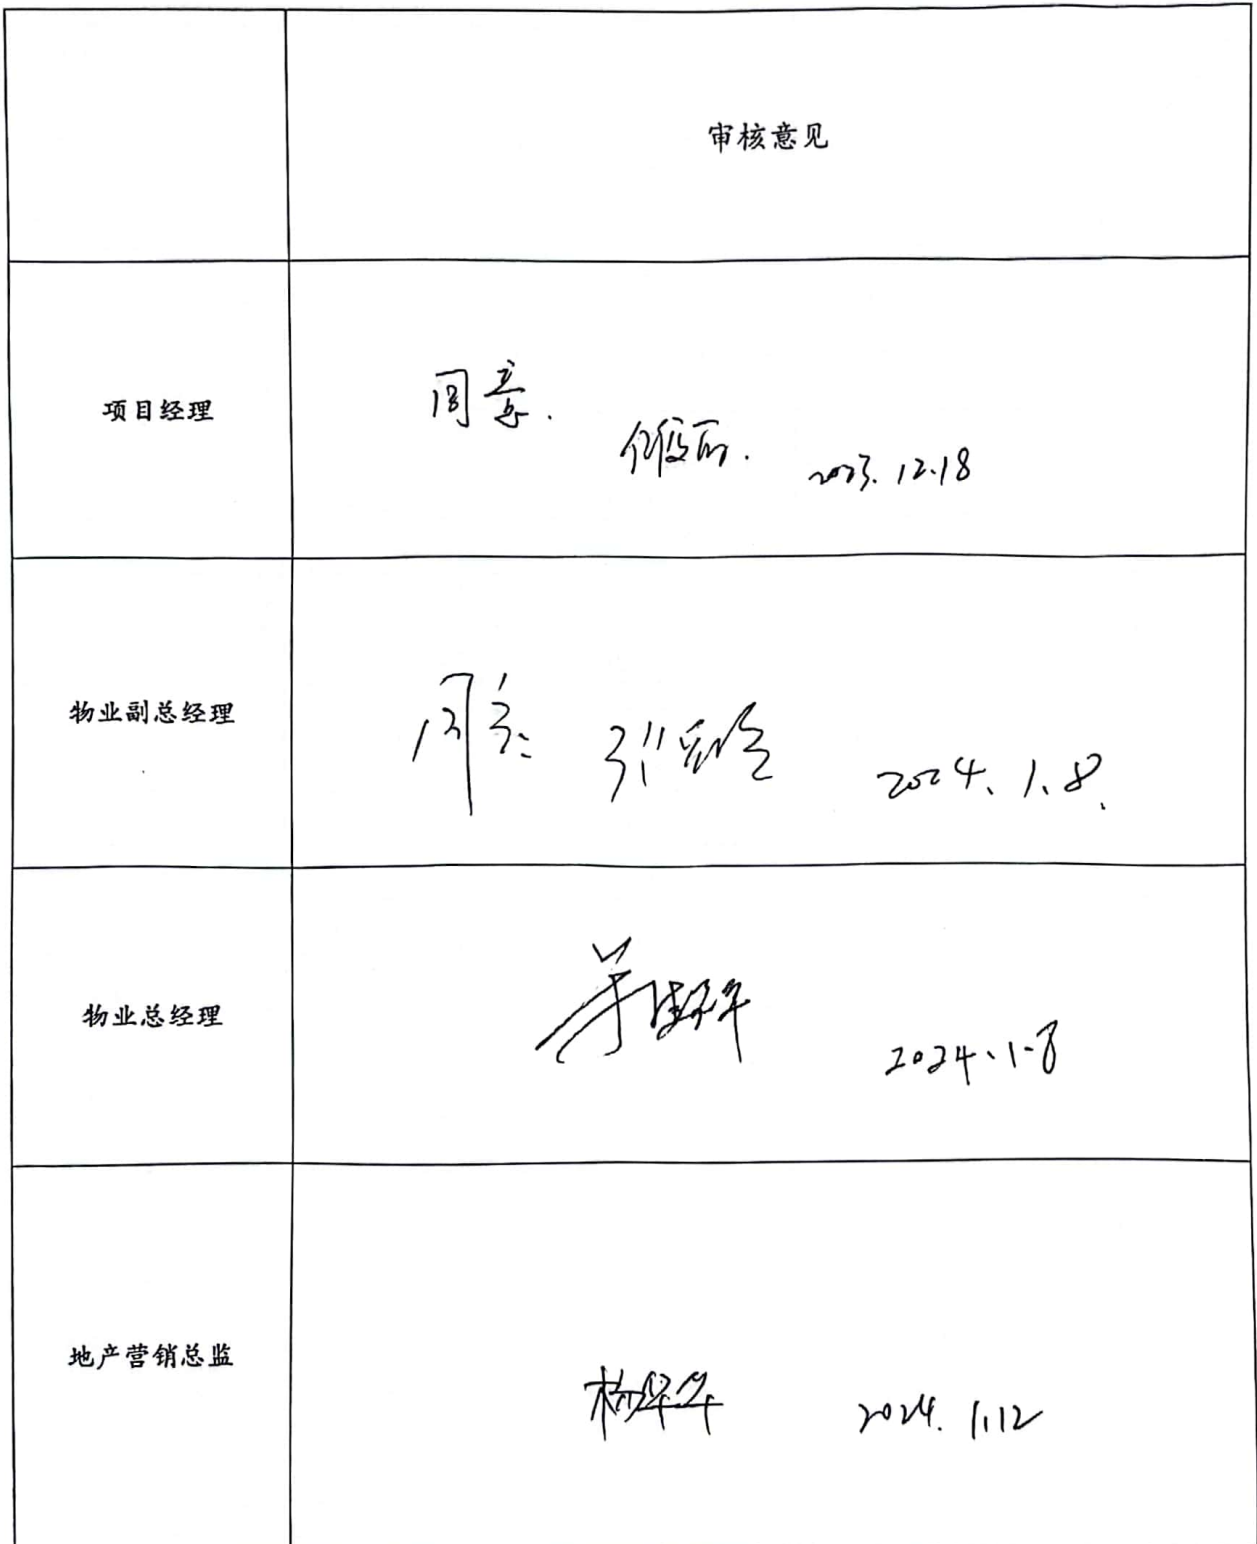 审核意见
项目经理
同意.
2023.12.18
物业副总经理
同意
2024.1.8.
物业总经理
2024.1-8
地产营销总监
2024.1.12